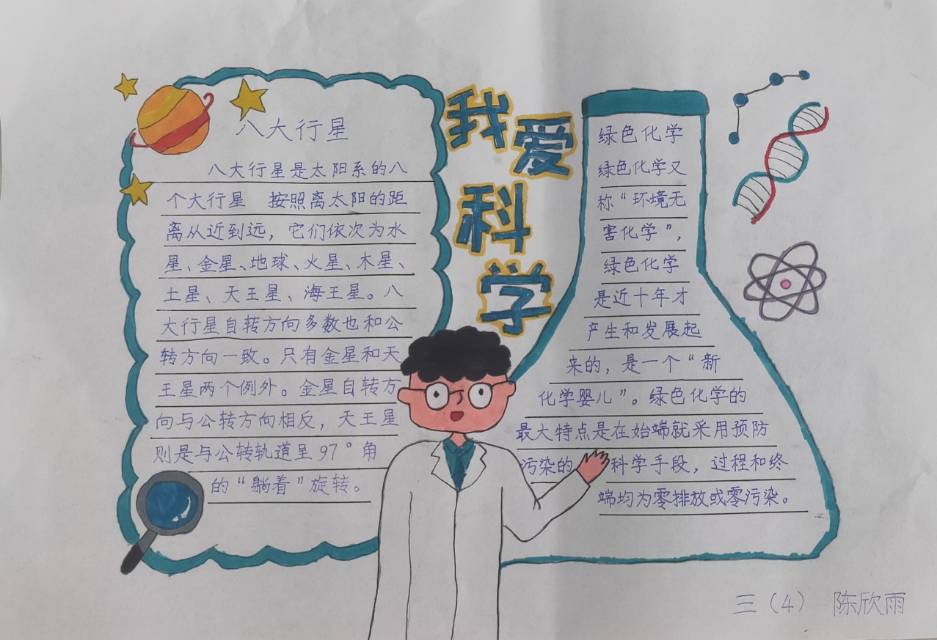 我爱科学
八大行星
八大行星是太阳系的八
个大行星 按照离太阳的距
离从近到远，它们依次为水
星、金星、地球、火星、木星、
土星、天王星、海王星。八
大行星自转方向多数也和公
转方向一致。只有金星和天
王星两个例外。金星自转方
向与公转方向相反，天王星
则是与公转轨道呈97°角
的“躺着”旋转。
绿色化学
绿色化学又
称“环境无
害化学”，
绿色化学
是近十年才
产生和发展起
来的，是一个“新
化学婴儿”。绿色化学的
最大特点是在始端就采用预防
污染的科学手段，过程和终
端均为零排放或零污染。
三（4） 陈欣雨